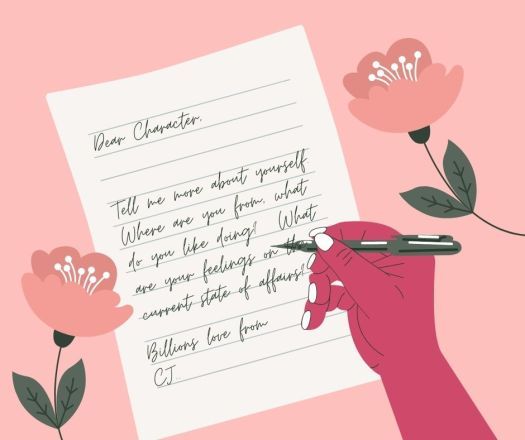 Dear Character,
Tell me more about yourself
Where are you from, what
do you like doing? What
are your feelings on the
current state of affairs?
Billions love from
CJ